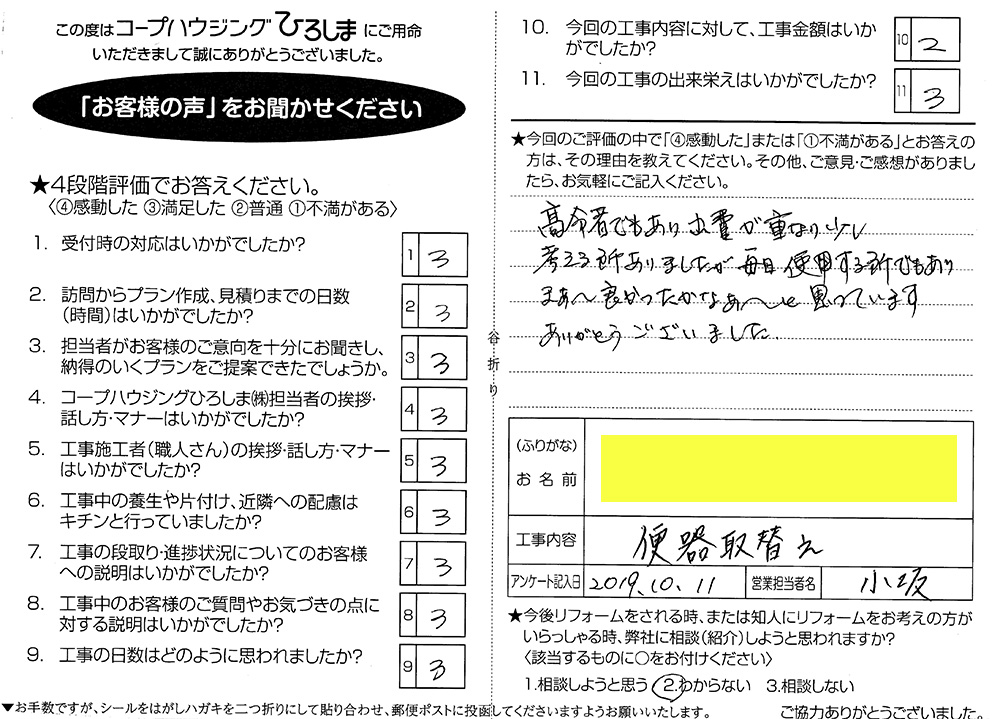 この度はコープハウジングひろしまにご用命
いただきまして誠にありがとうございました。
「お客様の声」をお聞かせください
★4段階評価でお答えください。
〈④感動した ③満足した ②普通 ①不満がある〉
1. 受付時の対応はいかがでしたか?
1 3
2. 訪問からプラン作成、見積りまでの日数
(時間)はいかがでしたか?
2 3
3. 担当者がお客様のご意向を十分にお聞きし、
納得のいくプランをご提案できたでしょうか。
3 3
4. コープハウジングひろしま㈱担当者の挨拶・
話し方・マナーはいかがでしたか?
4 3
5. 工事施工者(職人さん)の挨拶・話し方・マナー
はいかがでしたか?
5 3
6. 工事中の養生や片付け、近隣への配慮は
キチンと行っていましたか?
6 3
7. 工事の段取り・進捗状況についてのお客様
への説明はいかがでしたか?
7 3
8. 工事中のお客様のご質問やお気づきの点に
対する説明はいかがでしたか?
8 3
9. 工事の日数はどのように思われましたか?
9 3
▼お手数ですが、シールをはがしハガキを二つ折りにして貼り合わせ、郵便ポストに投函してくださいますようお願いいたします。
谷折り
10. 今回の工事内容に対して、工事金額はいか
がでしたか?
10 2
11. 今回の工事の出来栄えはいかがでしたか?
11 3
★今回のご評価の中で「④感動した」または「①不満がある」とお答えの
方は、その理由を教えてください。その他、ご意見・ご感想がありまし
たら、お気軽にご記入ください。
高令者でもあり出費が重なり少し
考える所ありましたが毎日使用する所でもあり
まぁ〜良かったかなぁ〜と思っています
ありがとうございました
(ふりがな)
お名前
工事内容 便器取替え
アンケート記入日 2019.10.11 営業担当者名 小坂
★今後リフォームをされる時、または知人にリフォームをお考えの方が
いらっしゃる時、弊社に相談(紹介)しようと思われますか?
〈該当するものに○をお付けください〉
1.相談しようと思う 2.わからない 3.相談しない
ご協力ありがとうございました。